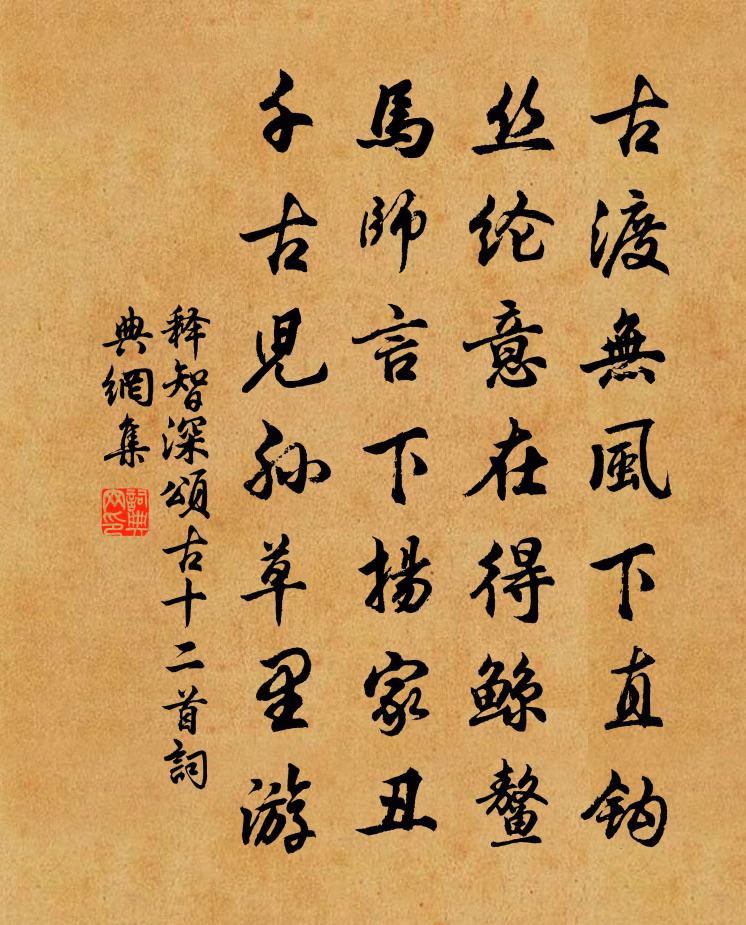 古渡無風下直钩
丝纶意在得鲸鳌
馬師言下揚家丑
千古児孙草里游
释智深頌古十二首詞
典網集
詞典
网印